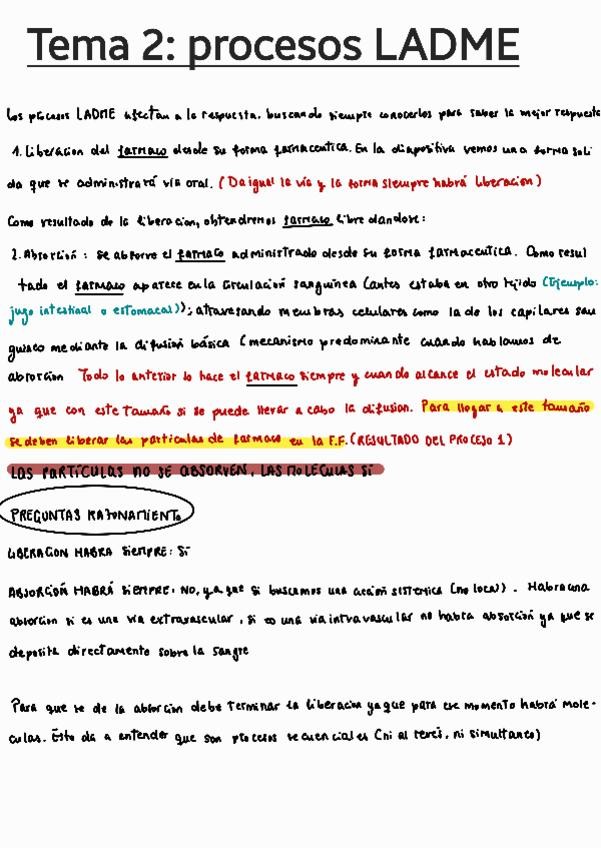 Tema 2: procesos LADME
Los procesos LADME afectan a la respuesta, buscando siempre conocerlos para saber la mejor respuesta
1. Liberacion del farmaco desde su forma farmaceutica. En la diapositiva vemos una forma soli
da que se administrará vía oral. (Da igual la vía y la forma siempre habrá liberacion)
Como resultado de la liberacion, obtendremos farmaco libre dandose:
2. Absorción: se absorve el farmaco administrado desde su forma farmaceutica. Como resul
tado el farmaco aparece en la circulación sanguínea (antes estaba en otro tejido (Ejemplo:
jugo intestinal o estomacal)); atravesando membras celulares como la de los capilares san
guineo mediante la difusión básica (mecanismo predominante cuando hablamos de
absorcion Todo lo anterior lo hace el farmaco siempre y cuando alcance el estado molecular
ya que con este tamaño si se puede llevar a cabo la difusion. Para llegar a este tamaño
se deben liberar las particulas de farmaco en la F.F. (RESULTADO DEL PROCESO 1)
LAS PARTÍCULAS NO SE ABSORVEN, LAS MOLECULAS SI
PREGUNTAS RAZONAMIENTO
LIBERACION HABRA SIEMPRE: SI
ABSORCIÓN HABRÁ SIEMPRE: NO, ya que si buscamos una acción sistemica (no local). Habra una
absorcion si es una via extravascular, si es una via intravascular no habra absorción ya que se
deposita directamente sobre la sangre
Para que se de la absorcion debe terminar la liberacion ya que para ese momento habrá mole-
culas. Esto da a entender que son procesos secuenciales (ni al revés, ni simultaneo)